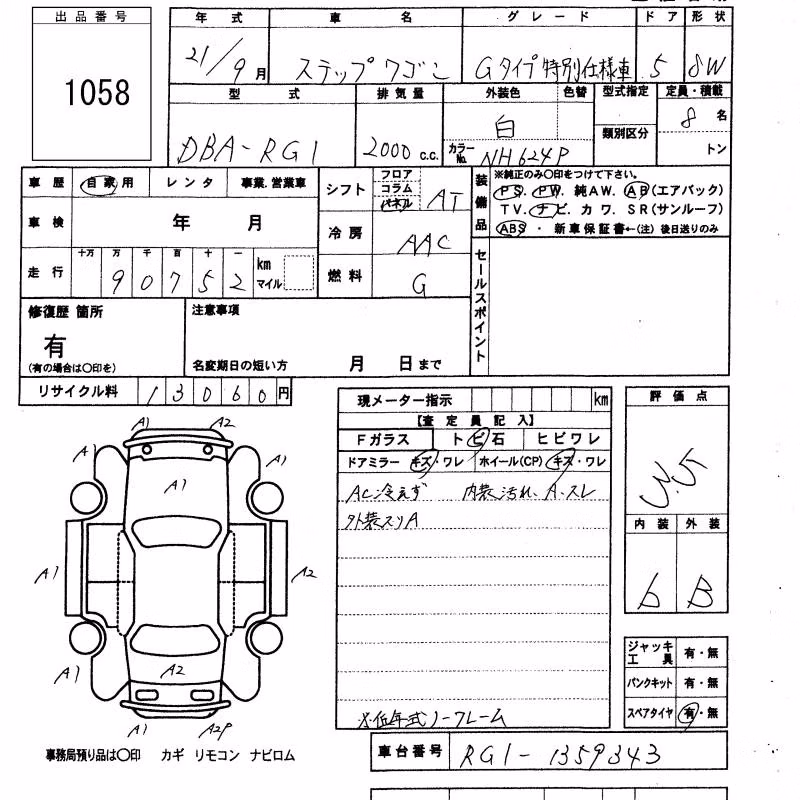 出品番号
1058
年式 車名 グレード ドア 形状
21/9月 ステップワゴン Gタイプ特別仕様車 5 8W
型式 排気量 外装色 色替 型式指定 定員・積載
DBA-RG1 2000c.c. 白 8名
カラーNo. NH624P 類別区分 トン
車歴 自家用 レンタ 事業.営業車
シフト フロア コラム パネル AT
車検 年 月
冷房 AAC
走行 十万 万 千 百 十 一
90752 km マイル
燃料 G
装備品 ※純正のみ〇印をつけて下さい。
PS. PW. 純AW. AB(エアバック)
TV. ナビ. カワ. SR(サンルーフ)
ABS ・ 新車保証書←(注) 後日送りのみ
セールスポイント
修復歴 箇所
有
(有の場合は〇印を)
注意事項
名変期日の短い方 月 日まで
リサイクル料 13060円
現メーター指示 km
【査定員記入】
Fガラス トビ石 ヒビワレ
ドアミラー キズ・ワレ ホイール(CP) キズ・ワレ
AC冷えず 内装汚れ、A.スレ
外装スリA
※低年式ノークレーム
評価点
3.5
内装 外装
b B
ジャッキ工具 有・無
パンクキット 有・無
スペアタイヤ 有・無
A1 A2
A1 A1
A1
A1 A2
A1 A2 A1
A1 A2P
事務局預り品は〇印 カギ リモコン ナビロム
車台番号 RG1-1359343